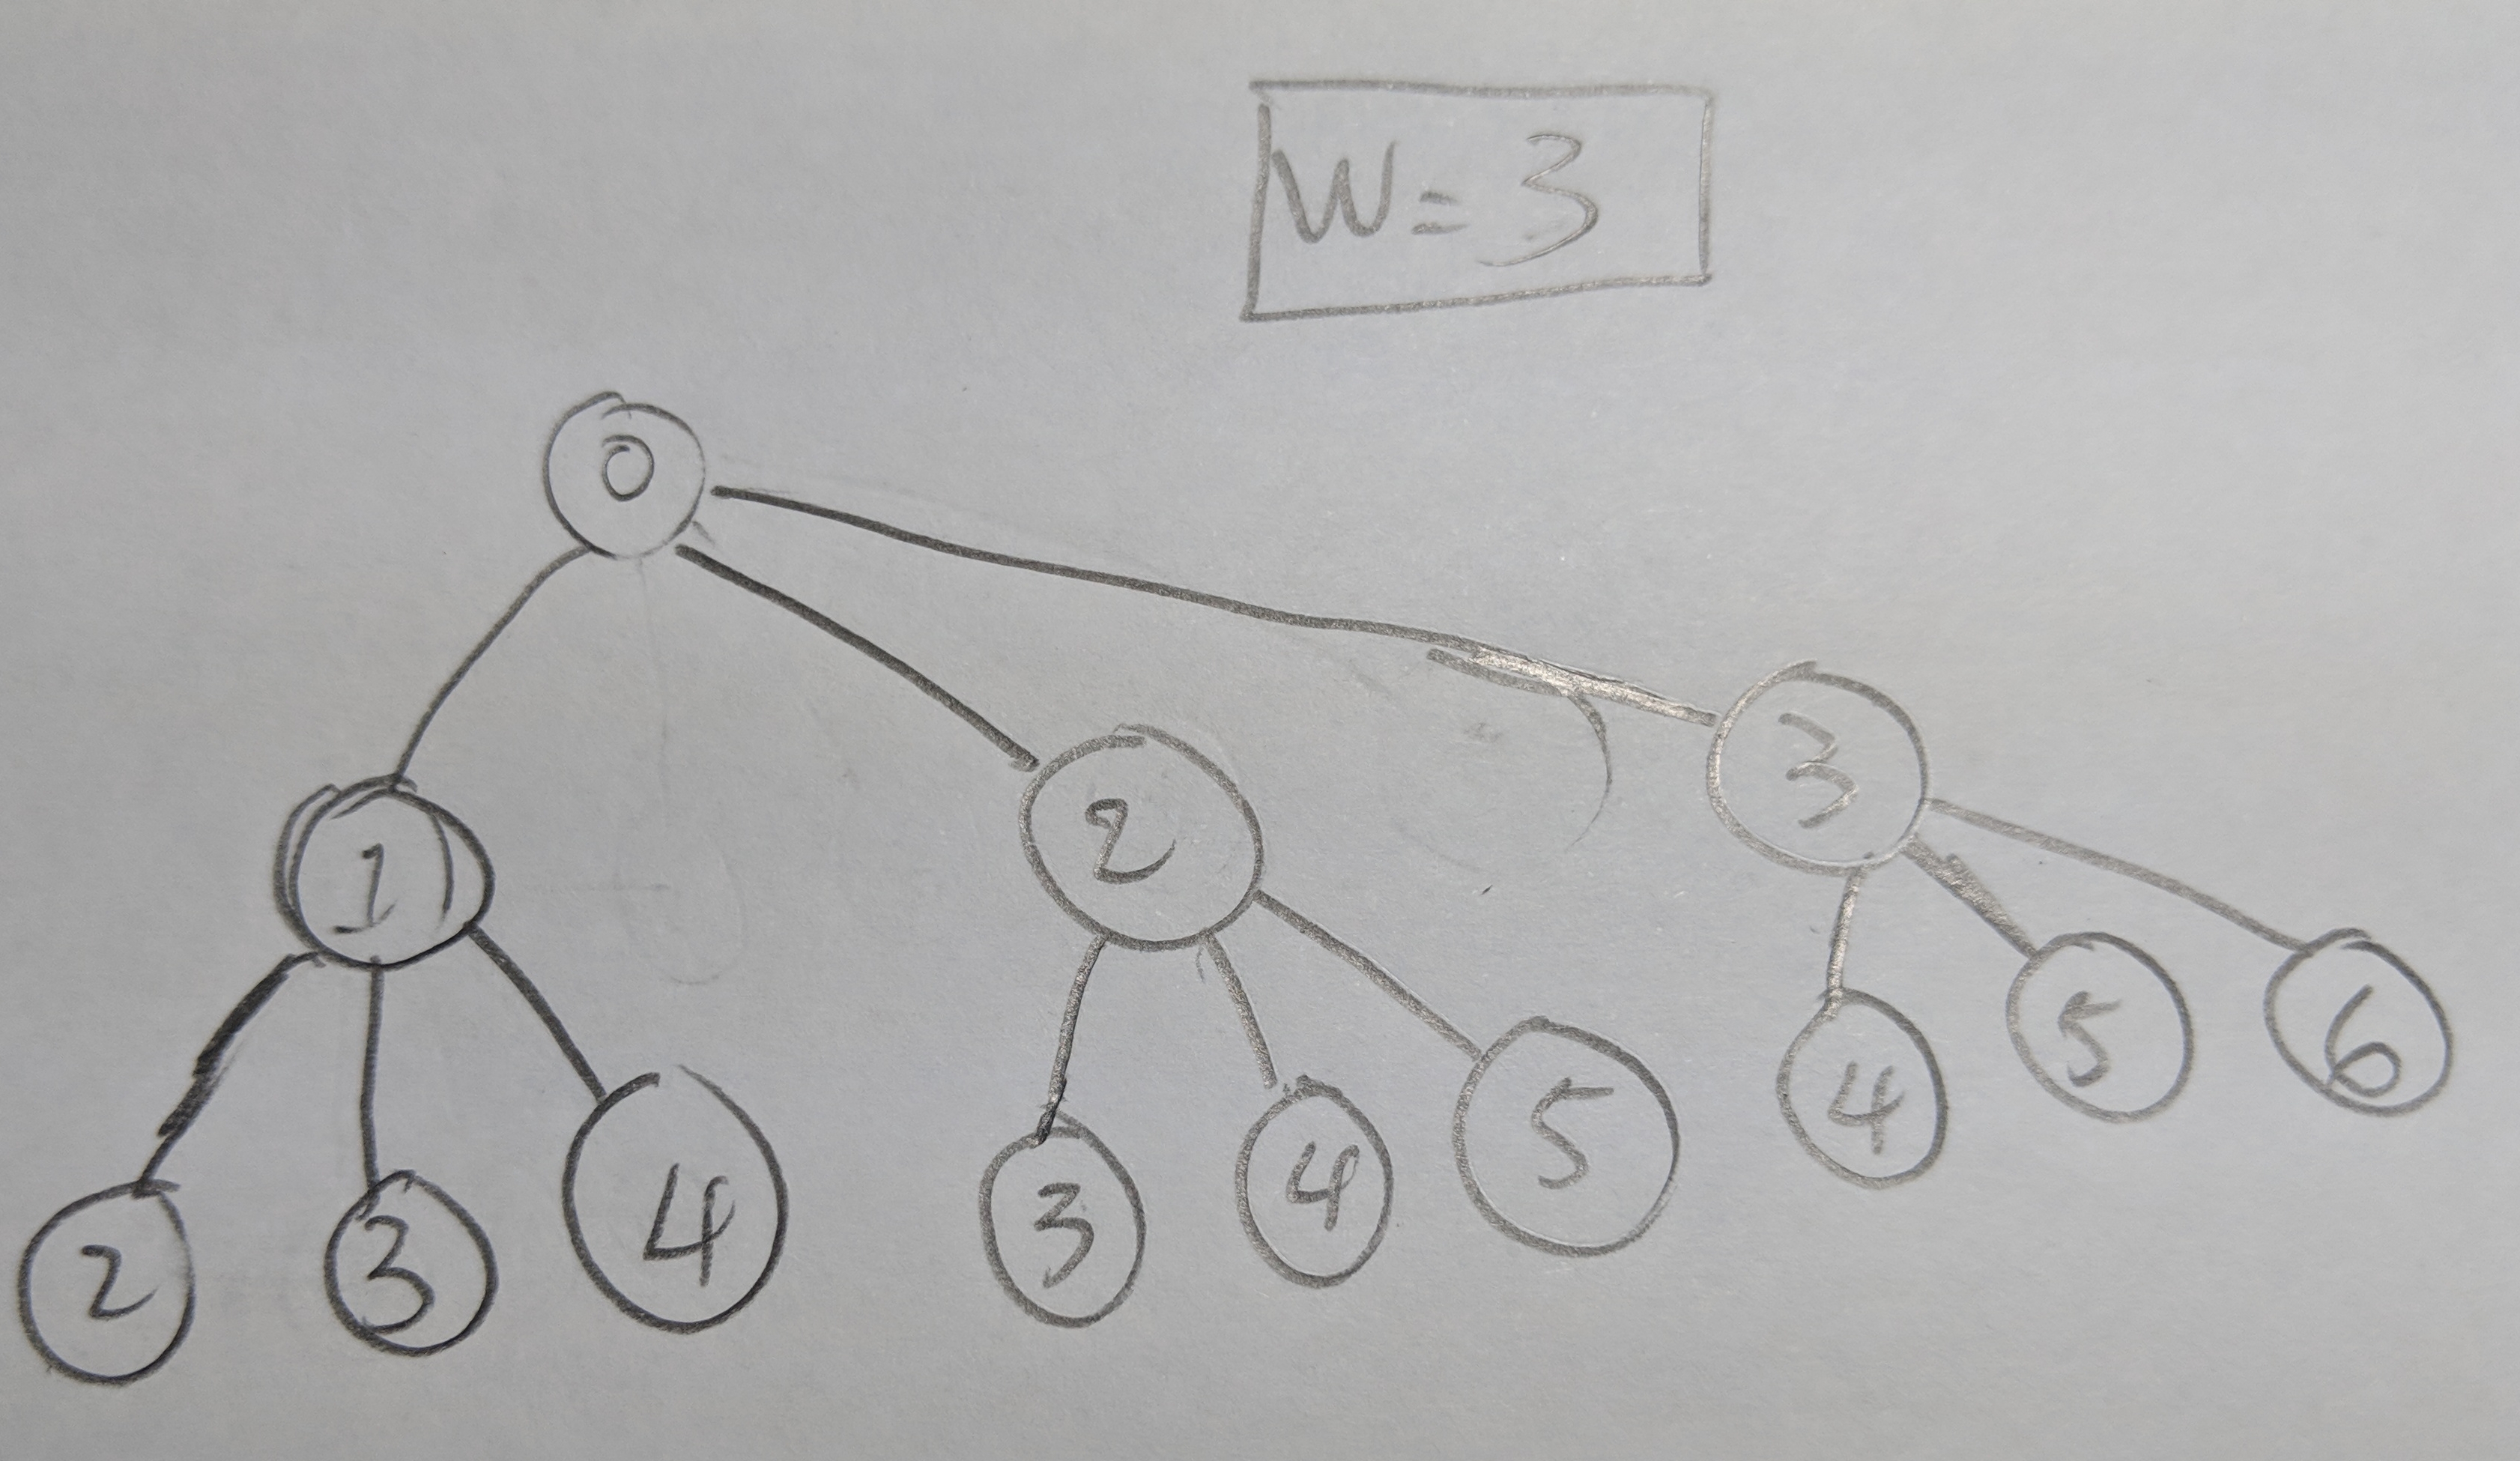 W = 3
0
1 2 3
2 3 4 3 4 5 4 5 6